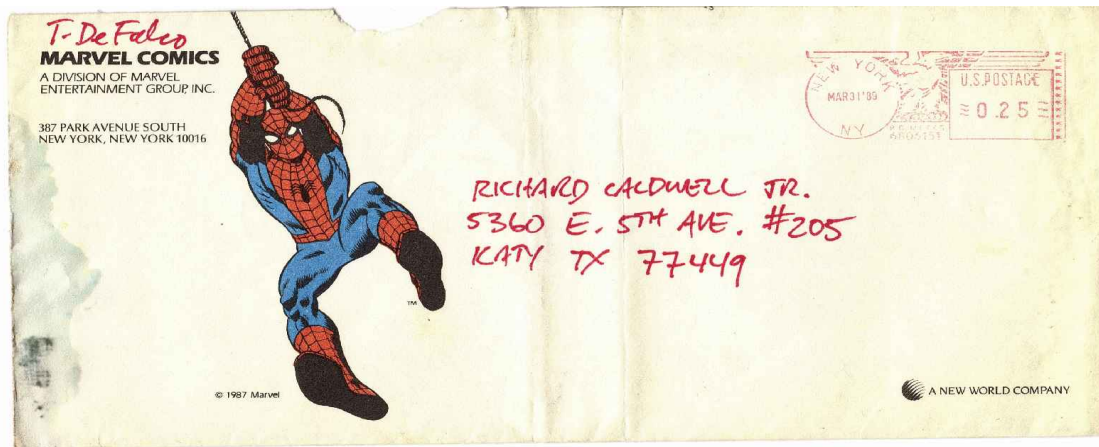 T. DeFalco
MARVEL COMICS
A DIVISION OF MARVEL
ENTERTAINMENT GROUP, INC.
387 PARK AVENUE SOUTH
NEW YORK, NEW YORK 10016
NEW YORK
MAR 31 '89
NY
U.S. POSTAGE
0.25
RICHARD CALDWELL JR.
5360 E. 5TH AVE. #205
KATY TX 77449
TM
© 1987 Marvel
A NEW WORLD COMPANY